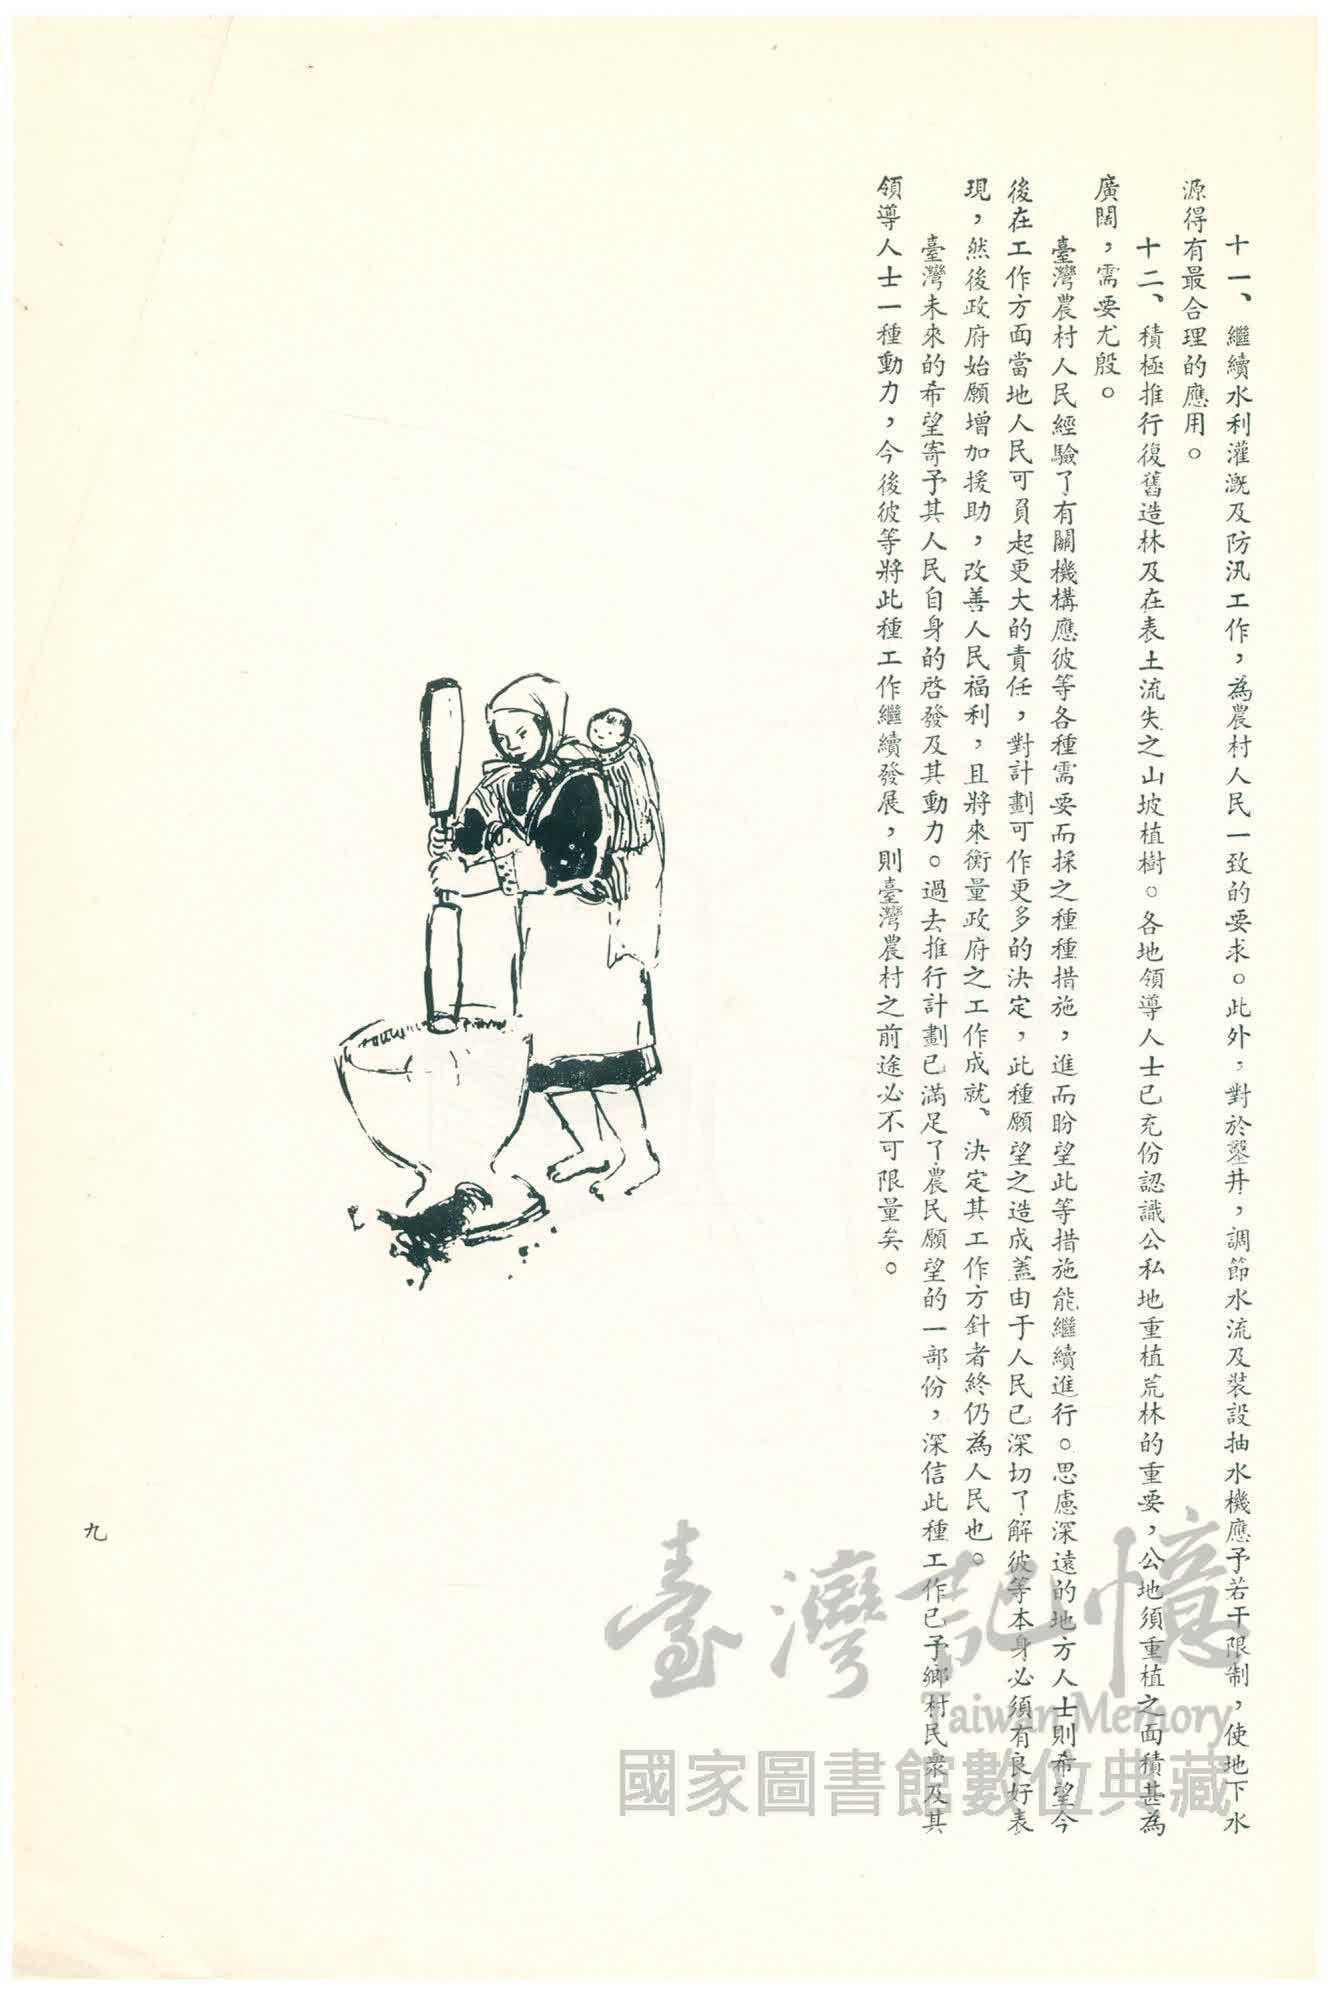 十一、繼續水利灌漑及防汛工作，為農村人民一致的要求。此外，對於鑿井，調節水流及裝設抽水機應予若干限制，使地下水
源得有最合理的應用。
十二、積極推行復舊造林及在表土流失之山坡植樹。各地領導人士已充份認識公私地重植荒林的重要，公地須重植之面積甚為
廣闊，需要尤殷。
臺灣農村人民經驗了有關機構應彼等各種需要而採之種種措施，進而盼望此等措施能繼續進行。思慮深遠的地方人士則希望今
後在工作方面當地人民可負起更大的責任，對計劃可作更多的決定，此種願望之造成蓋由于人民已深切了解彼等本身必須有良好表
現，然後政府始願增加援助，改善人民福利，且將來衡量政府之工作成就、決定其工作方針者終仍為人民也。
臺灣未來的希望寄予其人民自身的啓發及其動力。過去推行計劃已滿足了農民願望的一部份，深信此種工作已予鄉村民衆及其
領導人士一種動力，今後彼等將此種工作繼續發展，則臺灣農村之前途必不可限量矣。
九
臺灣記憶
Taiwan Memory
國家圖書館數位典藏